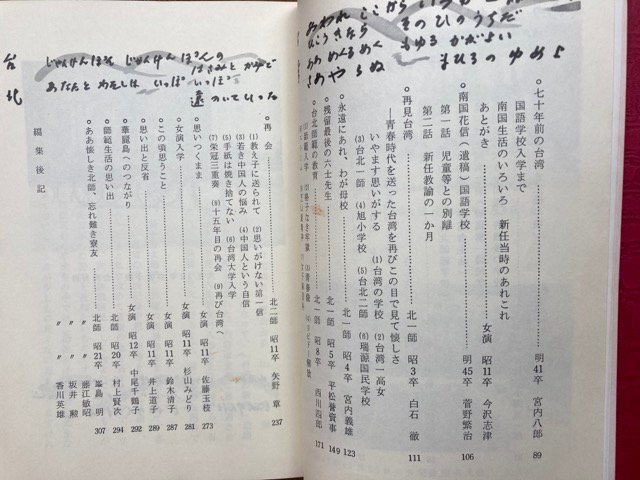 あわれ ここから いづか
ひのうちだ
かがよい
まひるの ゆめよ
さあやらぬ
◦七十年前の台湾……明41卒 宮内八郎 89
国語学校入学まで
南国生活のいろいろ 新任当時のあれこれ
あとがき……女演 昭11卒 今沢志津
◦南国花信（遺稿）国語学校……明45卒 菅野繁治 106
第一話 児童等との別離
第二話 新任教諭の一か月
◦再見台湾……北一師 昭3卒 白石 徹 111
―青春時代を送った台湾を再びこの目で見て懐しさ
いやます思いがする (1)台湾の学校 (2)台湾一高女
(3)台北一小 (4)旭小学校 (5)台北二師 (6)瑞源国民学校
◦永遠にあれ、わが母校……北一師 昭4卒 宮内義雄 123
◦残留最後の六士先生……北一師 昭5卒 平松誉資事 149
◦台北師範の教育……北一師 昭8卒 西川四郎 171
じゃんけんぽん じゃんけんぽんの
はさみと かみで
あなたと わたしは いっぽ いっぽ
遠のいていった
台北
◦再会……北二師 昭11卒 矢野 章 237
(1)教え子に送られて (2)思いがけない第一信
(3)若き中国人の悩み (4)中国人という自信
(5)手紙は焼き捨てない (6)台湾大学入学
(7)栄冠三重奏 (8)十五年目の再会 (9)再び台湾へ
◦思いつくまま……女演 昭11卒 佐藤玉枝 273
◦女演入学……女演 昭11卒 杉山みどり 281
◦この頃思うこと……女演 昭11卒 鈴木清子 287
◦思い出と反省……女演 昭11卒 井上道子 289
◦華麗島へのつながり……女演 昭12卒 中尾千鶴子 292
◦師範生活の思い出……北師 昭20卒 村上賢次 294
◦ああ懐しき北師、忘れ難き寮友……北師 昭21卒 嶌島 明 307
〃 藤江敏昭
〃 坂井 勲
〃 香川英雄
編集後記